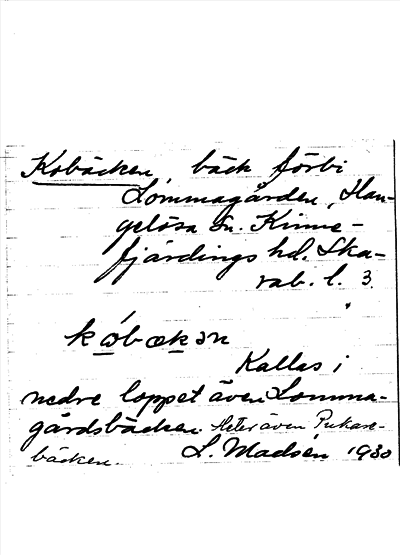 Kobäcken, bäck förbi
Lommagården, Han-
gelösa sn. Kinne-
fjärdings hd. Ska-
rab. l. 3.
Kallas i
nedre loppet även Lomma-
gårdsbäcken. Heter även Pukare-
bäcken. L. Madsén 1930